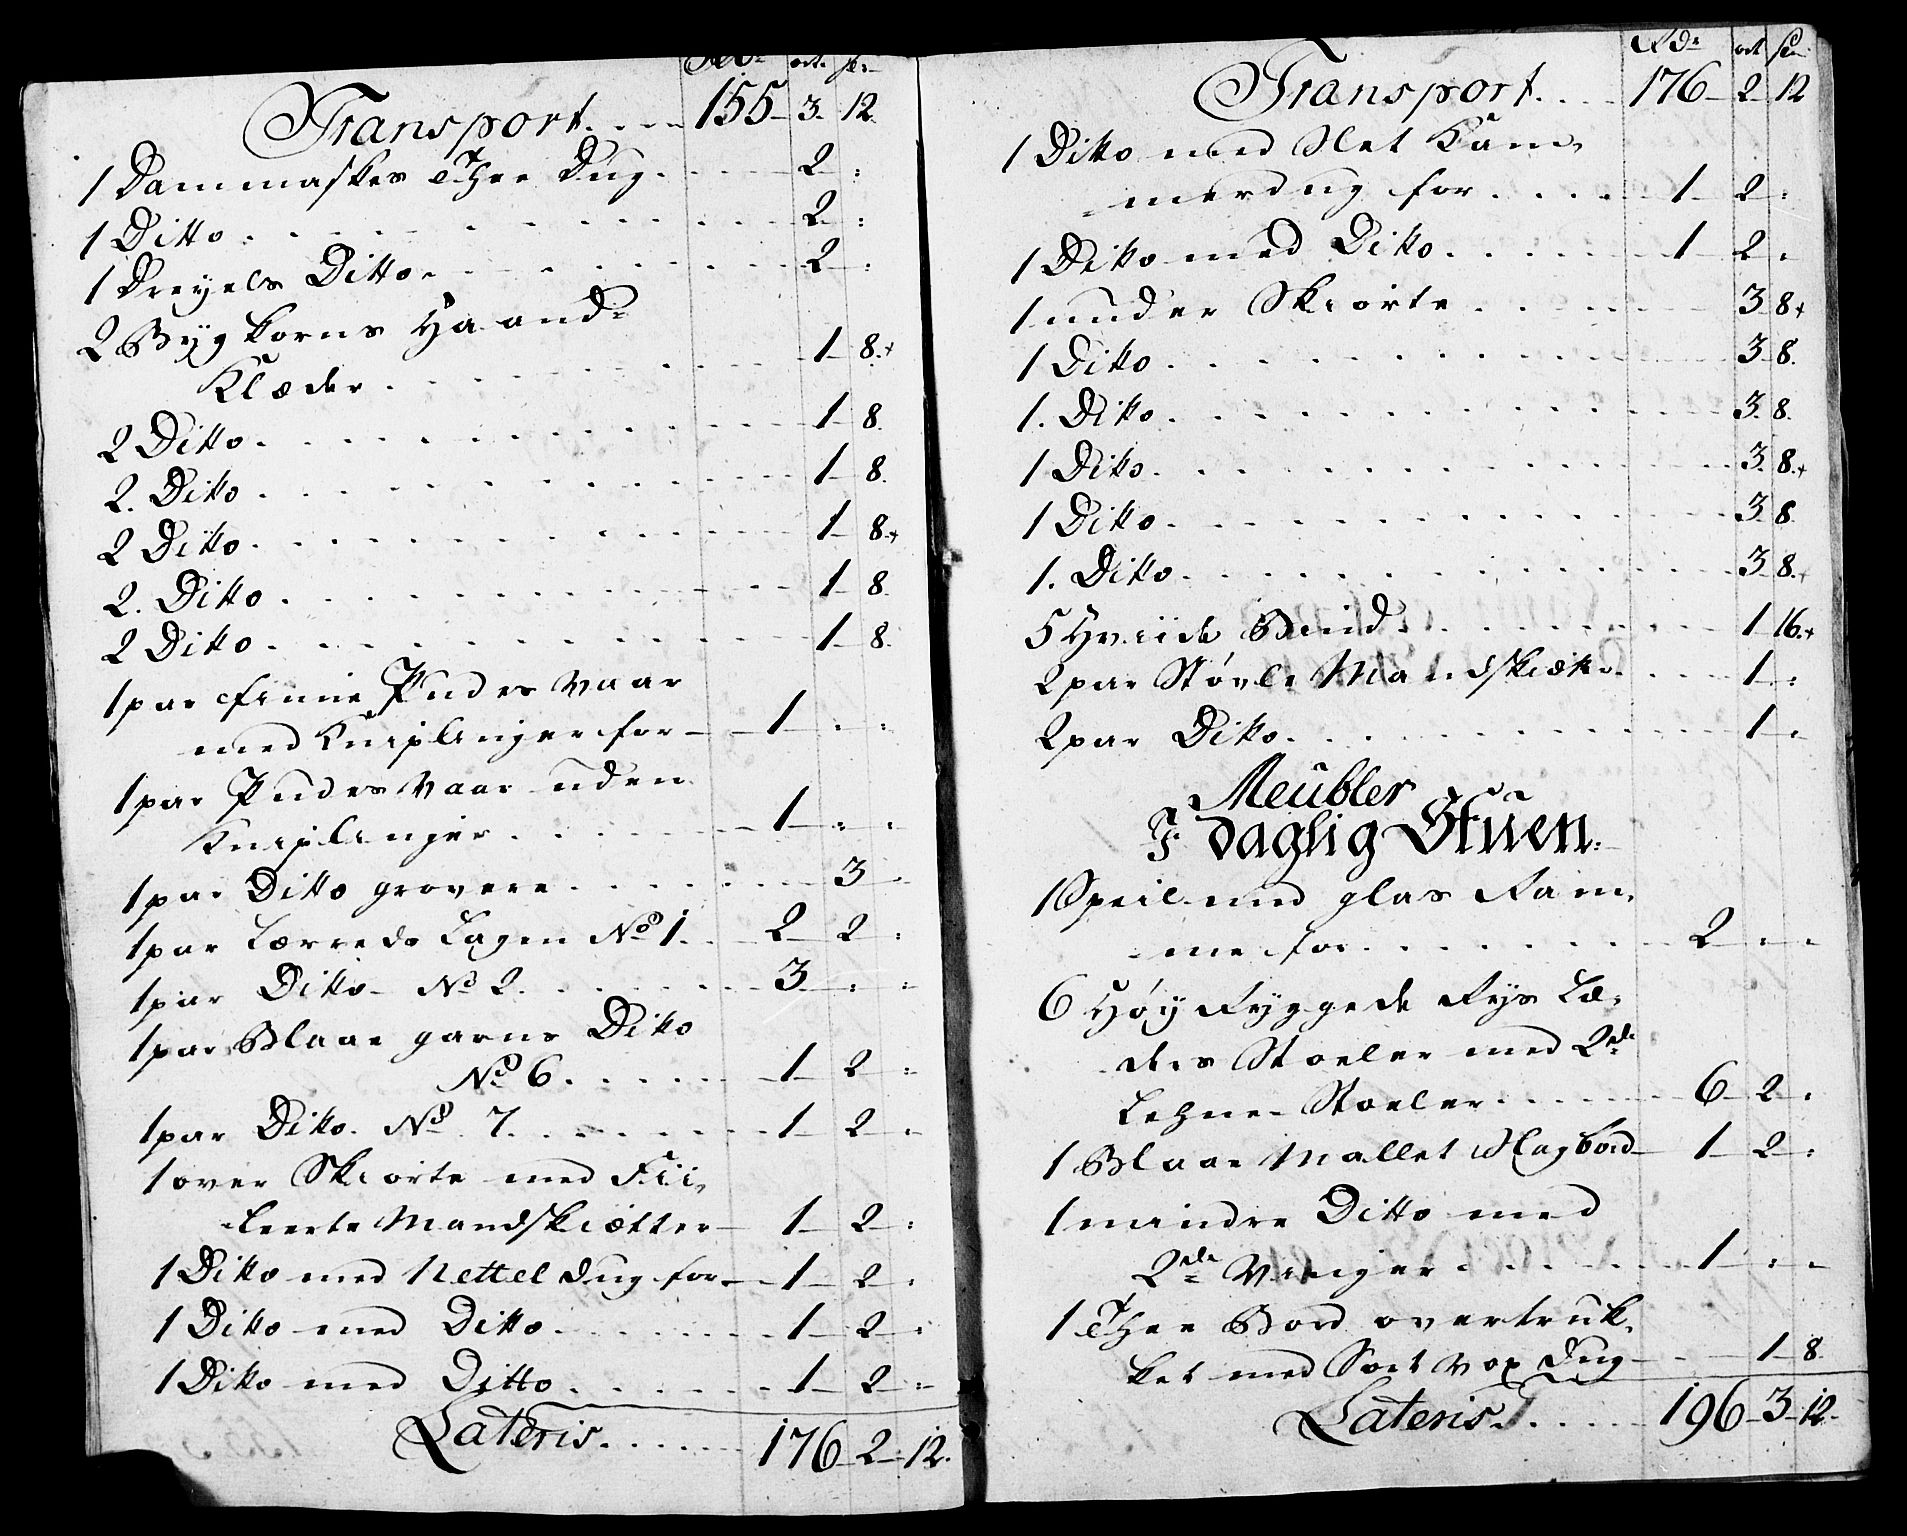 Rdr ort sk:
Transport.... 155 3. 12.
1 Dammaskes Thee Dug..... 2 :
1 Ditto......... 2 :
1 Dreyels Ditto....... 2 :
2 Bygkorns Haand=
Klæder......... 1 8.+
2 Ditto......... 1 8.
2. Ditto......... 1 8.
2 Ditto......... 1 8.+
2. Ditto......... 1 8.
2 Ditto......... 1 8.
1 par finne Pudes Vaar
med Kniplinger for 1 : :
1 par Pudes Vaar uden
Kniplinger....... 1 : :
1 par Ditto grovere....... 3 :
1 par Lærreds Lagen No 1... 2 2 :
1 par Ditto No 2....... 3 : :
1 par Blaae garns Ditto
No 6...... 1 2 :
1 par Ditto. No 7....... 1 2 :
1 over Skiorte med Fii=
leerte Mandskietter 1 2 :
1 Ditto med Nettel dug for 1 2 :
1 Ditto med Ditto...... 1 2 :
1 Ditto med Ditto...... 1 2 :
Lateris...... 176 2 12.
Rdr ort sk:
Transport.... 176 2 12
1 Ditto med Slet Kam=
=merdug for..... 1 2 :
1 Ditto med Ditto...... 1 2 :
1 under Skiørte...... 3 8+
1 Ditto......... 3 8.
1. Ditto......... 3 8.
1 Ditto......... 3 8.+
1 Ditto......... 3 8.
1. Ditto......... 3 8.+
5 Hviide Bind....... 1 16.+
2 par Støvle Mandskietter.... 1 :
2 par Ditto......... 1 :
Meubler
I daglig Stuen.
1 Speil med glas Ram=
=me for....... 2 : :
6 Høy Ryggede Rys Læ=
ders Stoeler med 2de
Lehne Stoeler...... 6 2 :
1 Blaae Mallet Slagbord 1 2 :
1 mindre Ditto med
2de Vinger...... 1 : :
1 Thee Bord overtruk=
ket med Sort Vox dug 1 8.
Lateris..... 196 3 12.